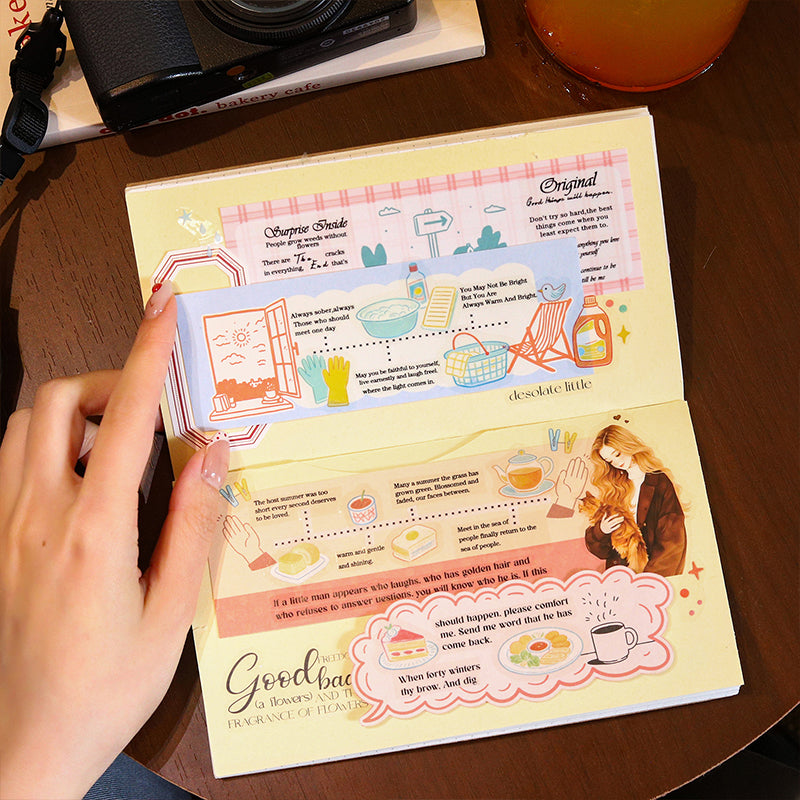 bakery cafe
Surprise Inside
People grow weeds without
flowers
There are The cracks
in everything, End that's
Original
Good things will happen.
Don't try so hard,the best
things come when you
least expect them to.
anything you love
yourself
continue to be
ll be me
Always sober,always
Those who should
meet one day
You May Not Be Bright
But You Are
Always Warm And Bright.
May you be faithful to yourself,
live earnestly and laugh freel.
where the light comes in.
desolate little
The host summer was too
short every second deserves
to be loved.
Many a summer the grass has
grown green. Blossomed and
faded, our faces between.
warm and gentle
and shining.
Meet in the sea of
people finally return to the
sea of people.
If a little man appears who laughs, who has golden hair and
who refuses to answer uestions, you will know who he is. If this
should happen, please comfort
me. Send me word that he has
come back.
When forty winters
thy brow. And dig
Good
FREEDO
bac
(a flowers) AND TH
FRAGRANCE OF FLOWERS